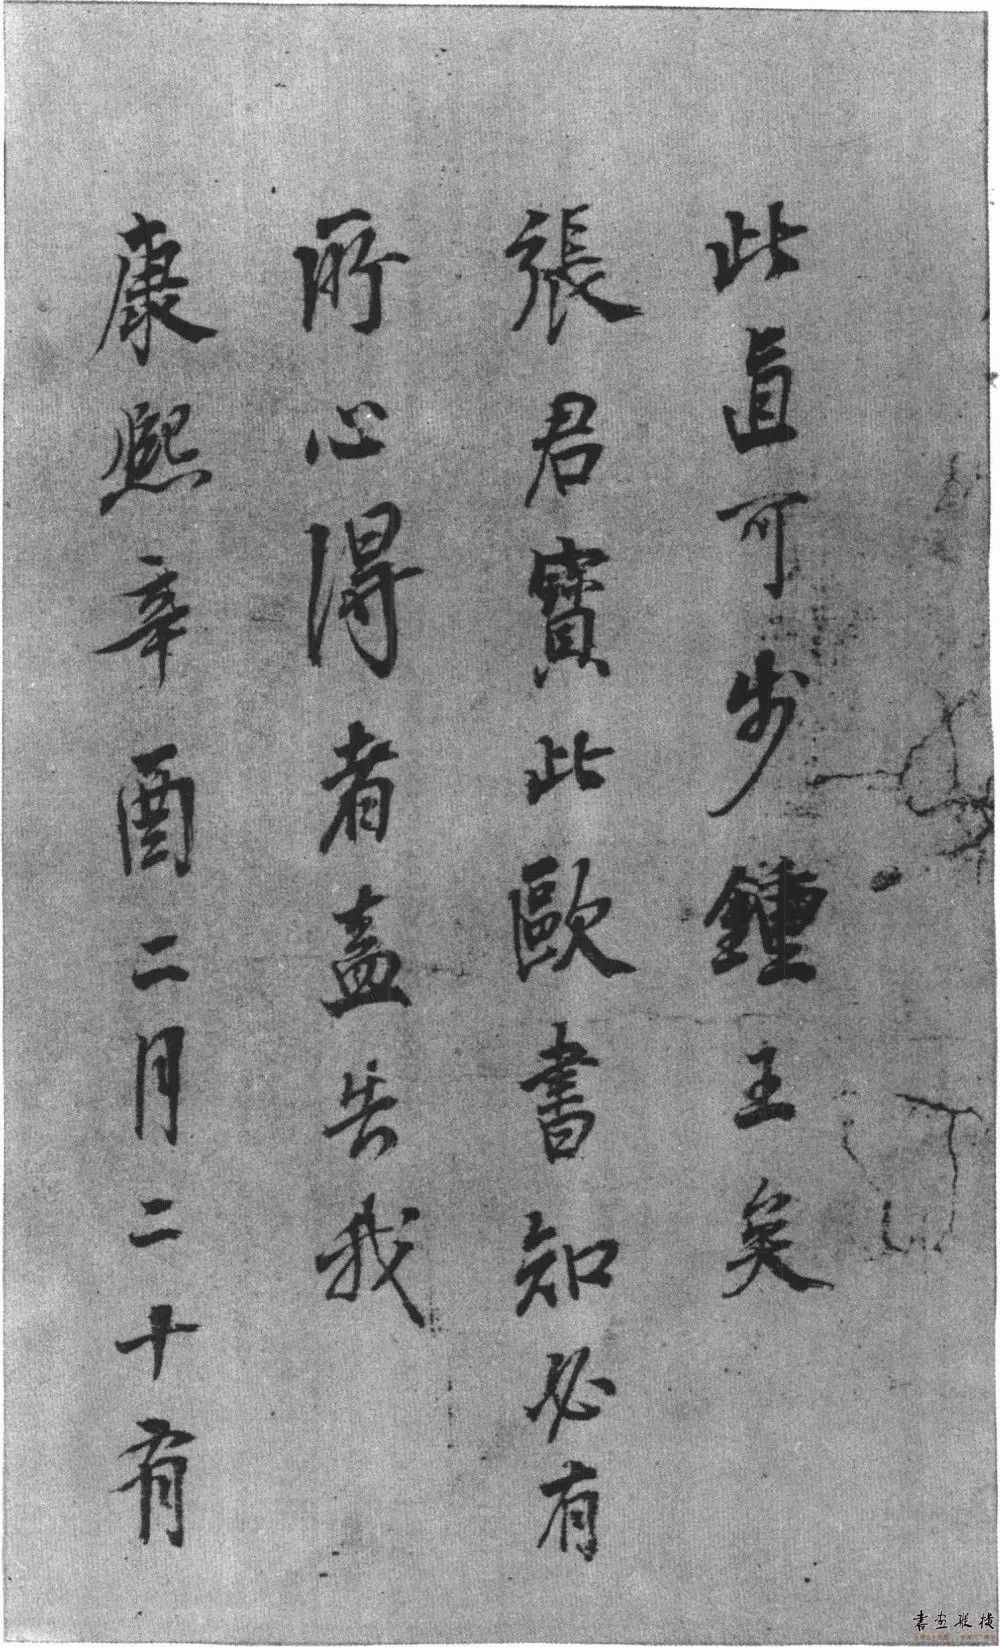 此直可步鍾王矣
張君寶此歐書知必有
所心得者盍告我
康熙辛酉二月二十有
書画縱橫